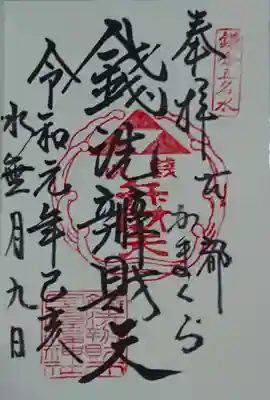 鎌倉五名水
奉拝 古都
かまくら
銭洗辨財天
令和元年己亥
水無月九日